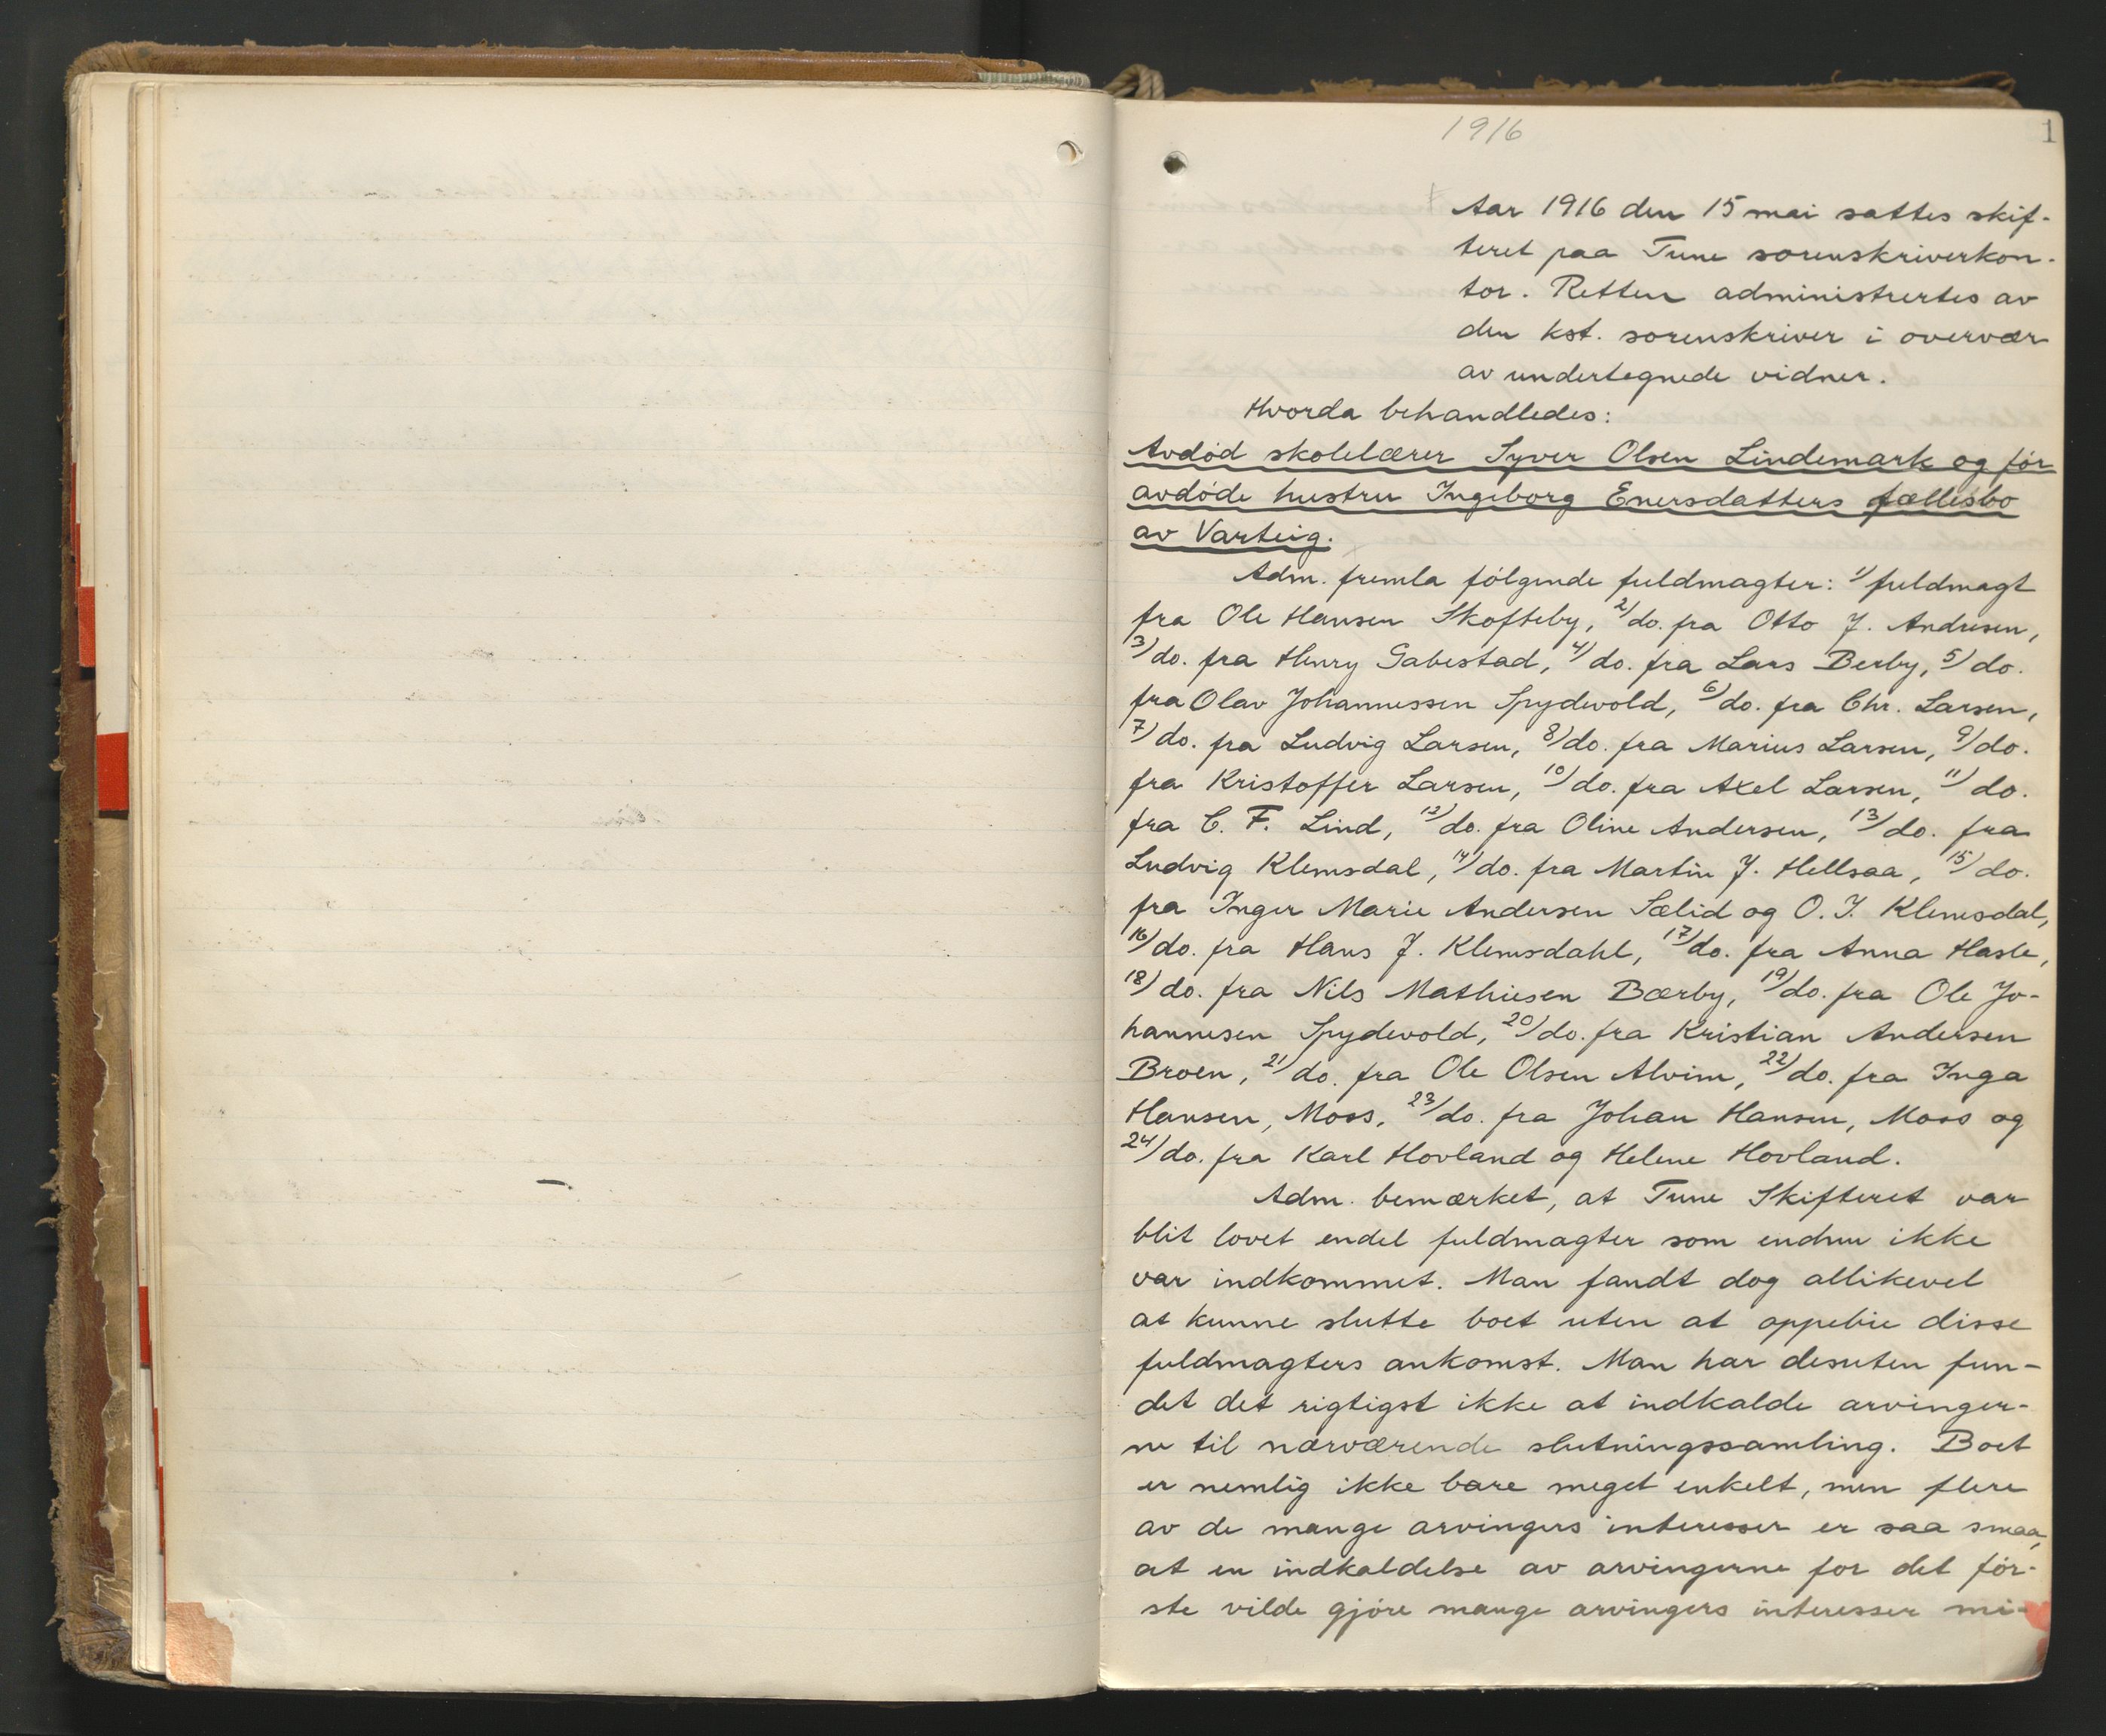 1916
1
Aar 1916 den 15 mai sattes skif-
teret paa Tune sorenskriverkon-
tor. Retten administrertes av
den kst. sorenskriver i overvær
av undertegnede vidner.
Hvorda behandledes:
Avdød skolelærer Syver Olsen Lindemark og før
avdøde hustru Ingeborg Enersdatters fællesbo
av Varteig.
Adm. fremla følgende fuldmagter: 1) fuldmagt
fra Ole Hansen Skofteby, 2) do. fra Otto J. Andresen,
3) do. fra Henry Gabestad, 4) do. fra Lars Berby, 5) do.
fra Olav Johannessen Spydevold, 6) do. fra Chr. Larsen,
7) do. fra Ludvig Larsen, 8) do. fra Marius Larsen, 9) do.
fra Kristoffer Larsen, 10) do. fra Axel Larsen, 11) do.
fra C. F. Lind, 12) do. fra Oline Andersen, 13) do. fra
Ludvig Klemsdal, 14) do. fra Martin J. Hellsaa, 15) do.
fra Inger Marie Andersen Sælid og O. J. Klemsdal,
16) do. fra Hans J. Klemsdahl, 17) do. fra Anna Hasle,
18) do. fra Nils Mathiesen Bærby, 19) do. fra Ole Jo-
hannesen Spydevold, 20) do. fra Kristian Andersen
Broen, 21) do. fra Ole Olsen Alvim, 22) do. fra Inga
Hansen, Moss, 23) do. fra Johan Hansen, Moss og
24) do. fra Karl Hovland og Helene Hovland.
Adm. bemærket, at Tune Skifteret var
blit lovet endel fuldmagter som endnu ikke
var indkommet. Man fandt dog allikevel
at kunne slutte boet uten at oppebie disse
fuldmagters ankomst. Man har desuten fun-
det det rigtigst ikke at indkalde arvinger-
ne til nærværende slutningssamling. Boet
er nemlig ikke bare meget enkelt, men flere
av de mange arvingers interesser er saa smaa,
at en indkaldelse av arvingerne for det før-
ste vilde gjøre mange arvingers interesser mi-